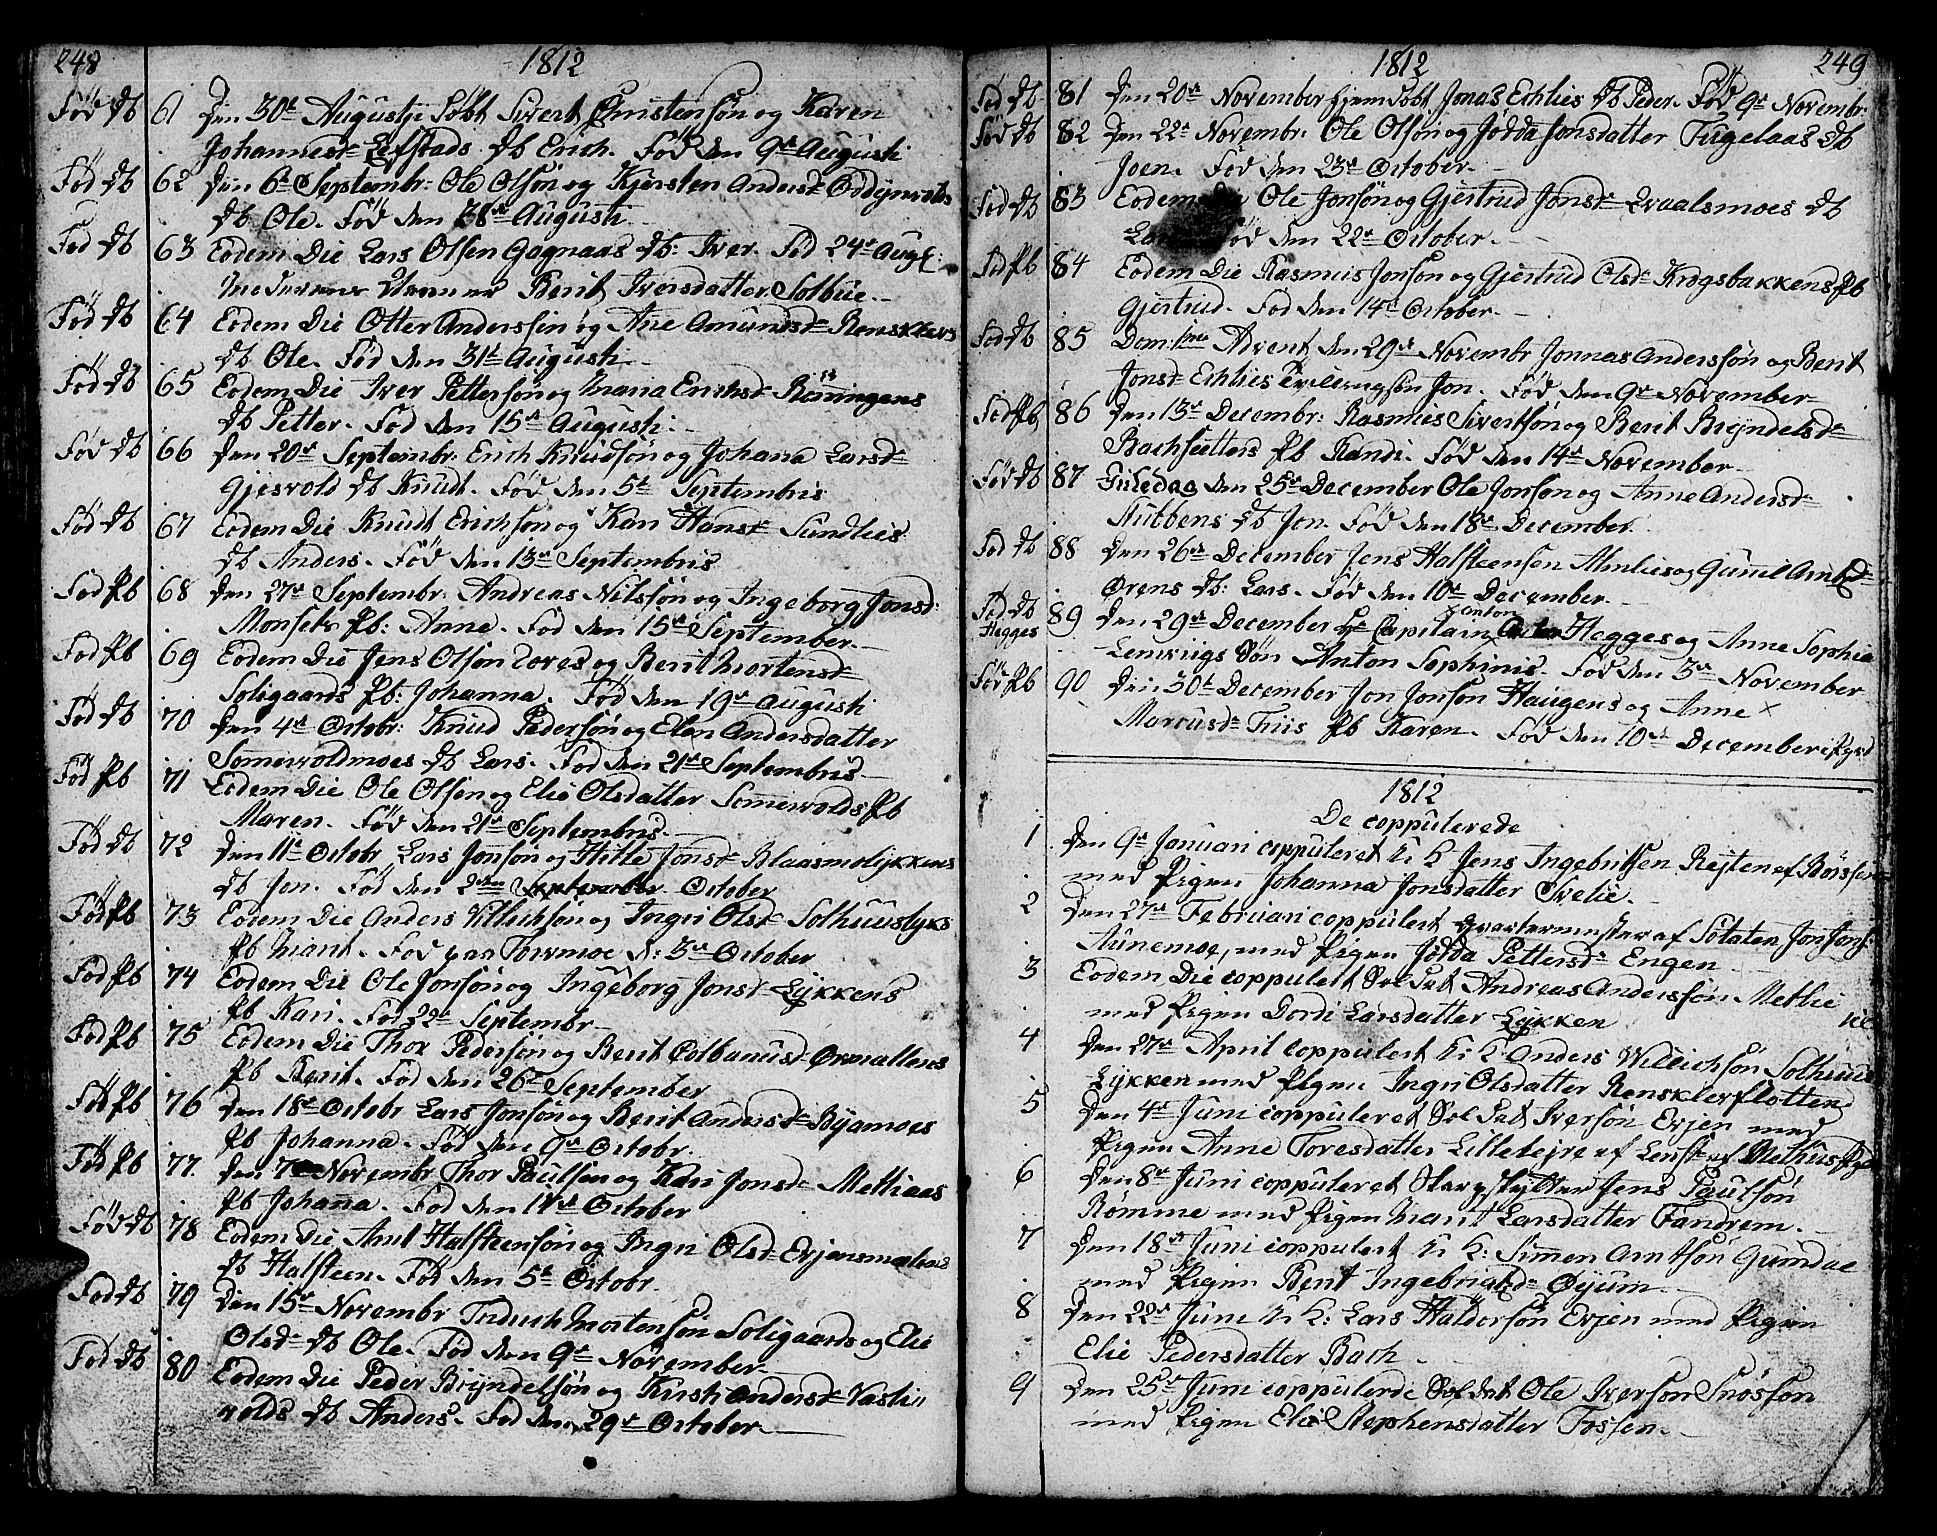 248
1812
Fød Db 61 Den 30te Augusti Døbt Sivert Christensøn og Karen
Johannesdr Lefstads Db Erich. Fød den 9de Augusti
Fød Db 62 Den 6te Septembr: Ole Olsøn og Kjersten Andersdr
Db Ole. Fød den 28de Augusti
Fød Db 63 Eodem Die Lars Olsen Gagnaas Db: Iver. Fød 24de Aug:
Moderens Navn er Berit Iversdatter Solbue.
Fød Db 64 Eodem Die Otter Andersøn og Ane Amundsdr Rensklevs
Db Ole. Fød den 31te Augusti
Fød Db 65 Eodem Die Iver Pettersøn og Maria Erichsdr Rønningens
Db Petter. Fød den 15de Augusti.
Fød Db 66 Den 20de Septembr: Erich Knudsøn og Johana Larsdr
Gjesvold Db Knud. Fød den 5te Septembris
Fød Db 67 Eodem Die Knudt Erichsøn og Kari Hansdr Sundlies
Db Anders. Fød den 13de Septembris
Fød Pb 68 Den 27de Septembr: Andreas Nilssøn og Ingeborg Jonsd:
Monset Pb: Anne. Fød den 15de September.
Fød Pb 69 Eodem Die Jens Olsøn Tores og Berit Mortensdr
Soligaards Pb: Johanna. Fød den 19de Augusti
Fød Db 70 Den 4de Octobr: Knud Pedersøn og Elen Andersdatter
Somervoldmoes Db Lars. Fød den 21de Septembris.
Fød Pb 71 Eodem Die Ole Olsøn og Elie Olsdatter Somervolds Pb
Maren. Fød den 21de Septembris.
Fød Db 72 Den 11te Octobr Lars Jonsøn og Jonsdr Blaasmolykkens
Db Jon. Fød den 2den September October
Fød Pb 73 Eodem Die Anders Villichsøn og Ingri Olsdr Solhuuslyks
Pb Marit. Fød paa Tormoe d: 3de October
Fød Pb 74 Eodem Die Ole Jonsøn og Ingeborg Jonsdr Lykkens
Pb Kari. Fød 22de Septembr
Fød Pb 75 Eodem Die Thor Pedersøn og Berit Colbanusdr
Pb Berit. Fød den 26de September
Fød Pb 76 Den 18de Octobr Lars Jonsøn og Berit Andersdr Byamoes
Pb Johanna. Fød den 9de Octobr.
Fød Pb 77. Den 7de Novembr Thor Paulsøn og Kari Jonsdr Metliaas
Pb Johana. Fød den 11de October
Fød Db 78 Eodem Die Arnt Halsteensøn og Ingri Olsdr
Db Halsteen. Fød den 5te Octobr.
Fød Db 79 Den 15de Novembr Mortensøn Soligaards og Elie
Olsdr Db Ole. Fød den 9de November
Fød Db 80 Eodem Die Peder Bryndelsøn og Kirsti Andersdr Vasli
volds Db Anders. Fød den 29de October
1812
249
Fød Db 81 Den 20de November hjemdøbt Jonas Echlies Db Peder. Fød 9de Novembr:
Fød Db 82 Den 22de Novembr: Ole Olsøn og Jødda Jonsdatter Fugelaas Db
Joen. Fød den 23de October.
Fød Db 83 Eodem Die Ole Jonsøn og Gjertrud Jonsdr Qvaalsmoes Db
Fød den 22de October.
Fød Pb 84 Eodem Die Rasmus Jonsøn og Gjertrud Olsdr Krogsbakkens Pb
Gjertrud. Fød den 14de October.
Fød Db 85 Dom: 1ma Advent den 29de Novembr Jonnas Andersøn og Berit
Jonsdr Echlies Jon. Fød den 9de November
Fød Pb 86 Den 13de Decembr: Rasmus Sivertsøn og Berit Bryndelsdr
Bachsetters Pb Randi. Fød den 14de November
Fød Db 87 Juledag den 25de December Ole Jonsøn og Anne Andersdr
Nubbens Db Jon. Fød den 18de December.
Fød Db 88 Den 26de December Jens Halsteensen Monlies og Gunnil Arntsdr
Ørens Db: Lars. Fød den 10de December.
Fød Db
Hegges 89 Den 29de December Hr Capitain Anton Hegges og Anne Sophia
Lemvigs Søn Anton Sophinis. Fød den 3de November
Fød Pb 90 Den 30te December Jon Jonsøn Haugens og Anne
Marcusdr Friis Pb Karen. Fød den 10de December
1812
De coppulerede
1 Den 9de Januari coppuleret U: K Jens Ingebritsen Rejten af Børssen
med Pigen Johanna Jonsdatter Evelie.
2 Den 27de Februari coppulert Qvartermester af Sotaten Jon Jons:
Aunemoe, med Pigen Jødda Pettersdr Engen
3 Eodem Die coppulert Soldat Andreas Andersøn Metlie
med Pigen Dordi Larsdatter Lykken
4 Den 27de April coppulert U: K Anders Willichsøn Solhuus
Lykken med Pigen Ingri Olsdatter Rensklevflotten
5 Den 4de Juni coppuleret Soldat Iversøn Evjen med
Pigen Anne Toresdatter Lillebejre af Methus
6 Den 8de Juni coppuleret Skarpskytter Jens Paulsøn
Rømme med Pigen Marit Larsdatter Fandrem.
7 Den 18de Juni coppulert U: K: Simen Arntsøn Grimdae
med Pigen Berit Ingebrigtsdr Øyum
8 Den 22de Juni U: K: Lars Haldorsøn Evjen med Pigen
Elie Pedersdatter Bach.
9 Den 25de Juni coppulerde Soldat Ole Iversøn Snøssøn
med Pigen Elie Stephensdatter Fossen.